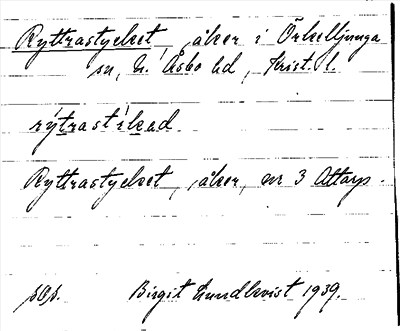 Ryttrastycket, åker i Örkelljunga
sn, N. Åsbo hd, Krist. l.
rýtrastíkəd
Ryttrastycket, åker, nr 3 Attarp.
pOp. Birgit Lundkvist 1939.